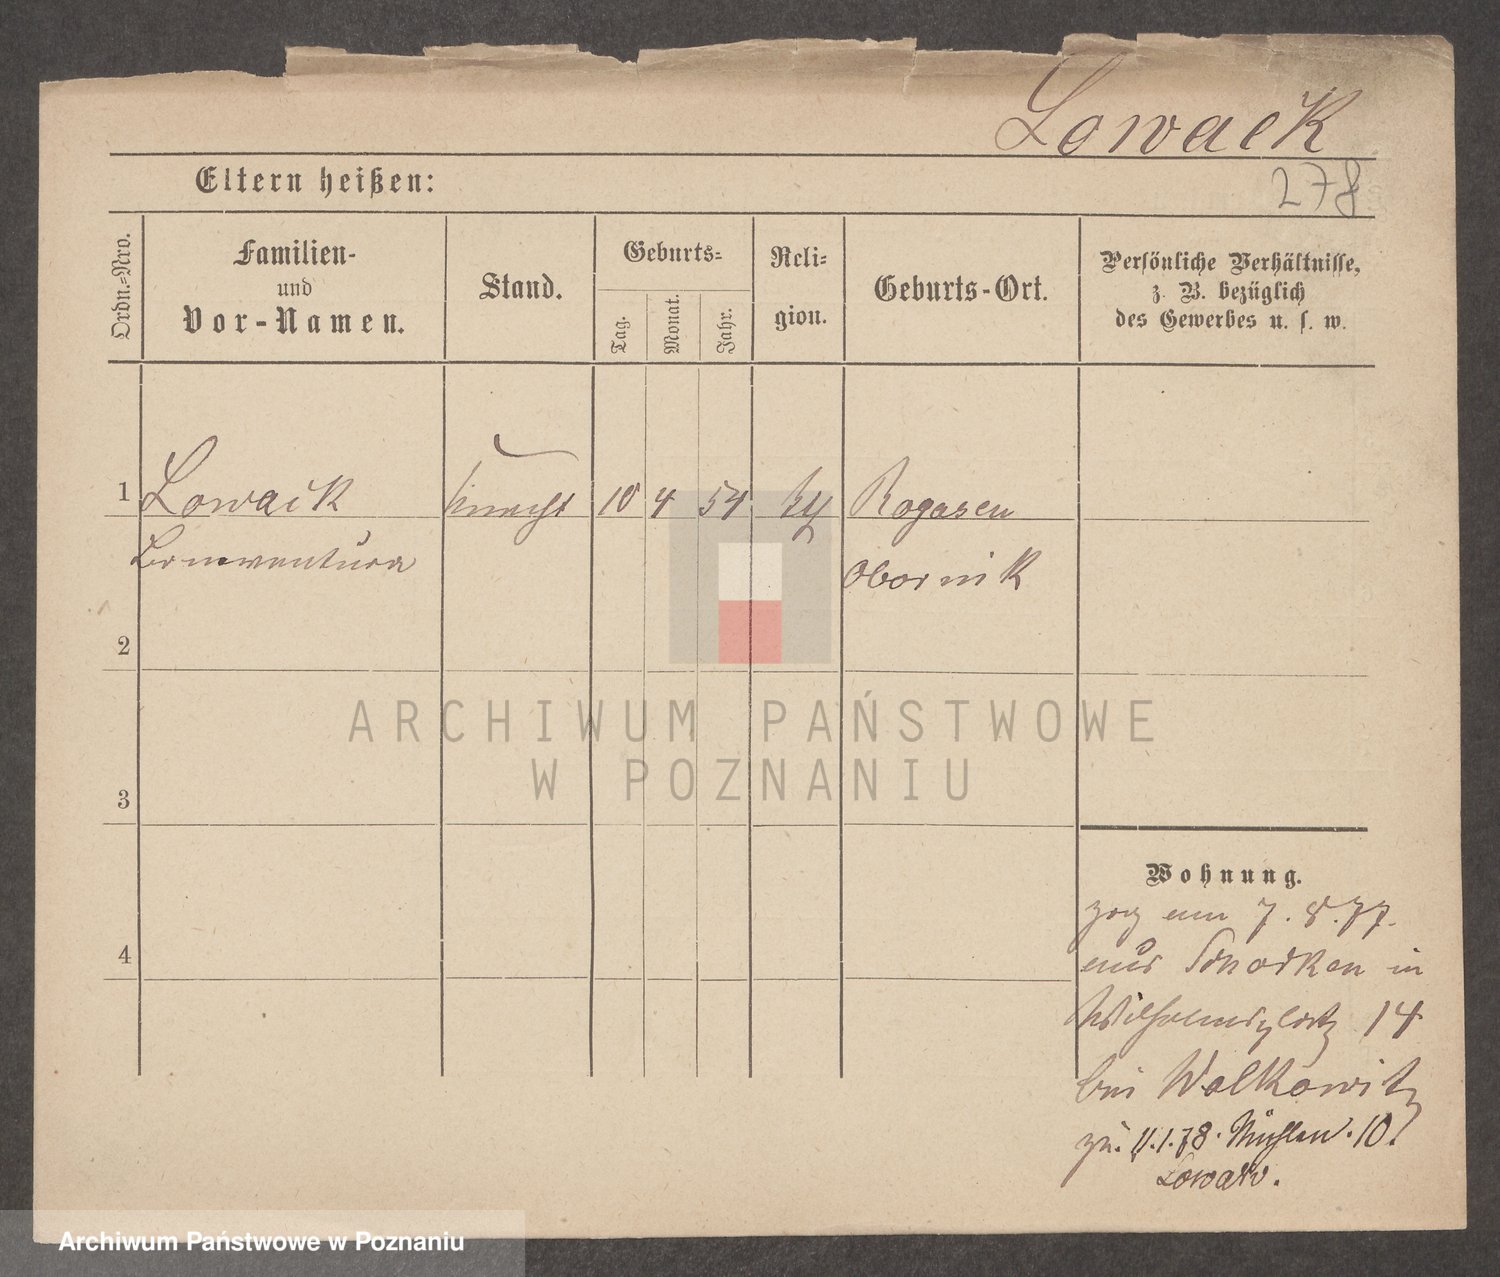 Lowack
Eltern heißen:
278
Ordn.-Nro.
Familien-
und
Vor-Namen.
Stand.
Geburts-
Tag.
Monat.
Jahr.
Reli-
gion.
Geburts-Ort.
Persönliche Verhältnisse,
z. B. bezüglich
des Gewerbes u. s. w.
1 Lowack Knecht 10 4 54 Rogasen
Bonaventura Obornik
2
3
4
Wohnung.
zog am 7. 8. 77.
aus in
Wilhelmsplatz 14
bei Wolkowitz
zu. 11.1.78. Mühlen. 10.
ARCHIWUM PAŃSTWOWE
W POZNANIU
Archiwum Państwowe w Poznaniu